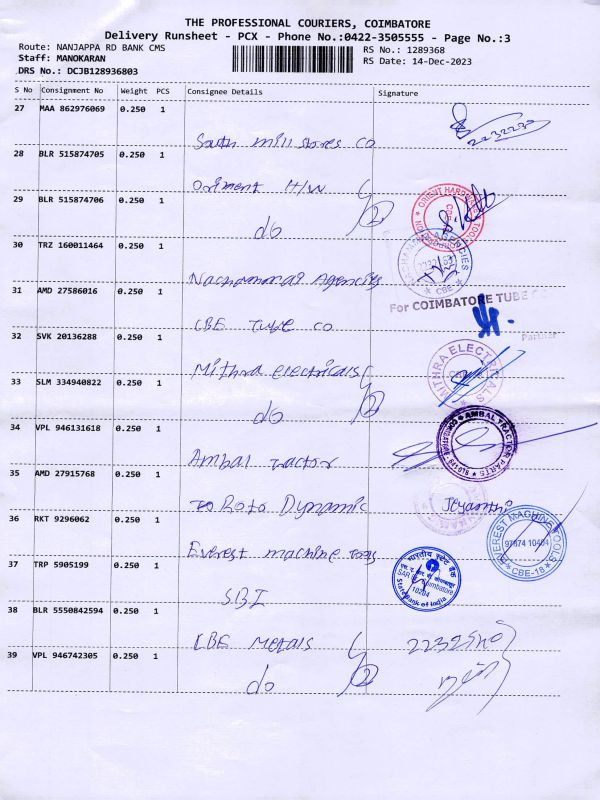 THE PROFESSIONAL COURIERS, COIMBATORE
Delivery Runsheet - PCX - Phone No.:0422-3505555 - Page No.:3
Route: NANJAPPA RD BANK CMS
RS No.: 1289368
Staff: MANOKARAN
RS Date: 14-Dec-2023
DRS No.: DCJB128936803
S No Consignment No Weight PCS Consignee Details Signature
27 MAA 862976069 0.250 1
South mill stores co 2232230
28 BLR 515874705 0.250 1
Oriment H/W
29 BLR 515874706 0.250 1
do 2
ORIENT HARDWARE
30 TRZ 160011464 0.250 1
Nachammai Agencies
AGENCIES
CBE
31 AMD 27586016 0.250 1
For COIMBATORE TUBE CO
CBE Tube co
Partner
32 SVK 20136288 0.250 1
Mithra electricals
MITHRA ELECTRICALS
33 SLM 334940822 0.250 1
do 2
34 VPL 946131618 0.250 1
Ambal Tractor
AMBAL TRACTOR PARTS
35 AMD 27915768 0.250 1
Roto Dynamic Jeyanthi
36 RKT 9296062 0.250 1
Everest machine Tools
EVEREST MACHINE TOOLS
CBE-18
37 TRP 5905199 0.250 1
SBI
भारतीय स्टेट बैंक
State Bank of India
38 BLR 5550842594 0.250 1
CBE Metals
39 VPL 946742305 0.250 1
do 2